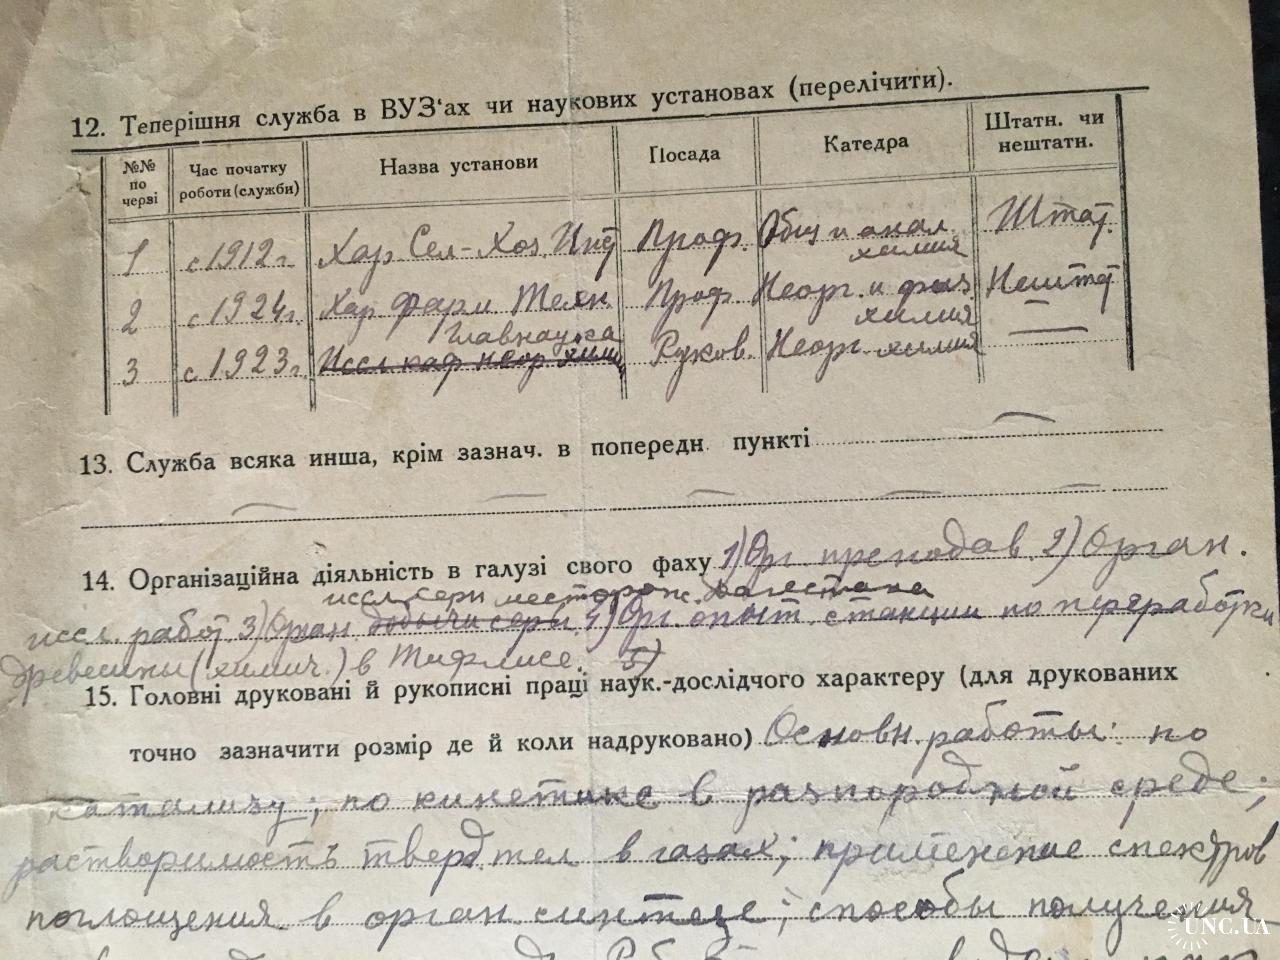 12. Теперішня служба в ВУЗ'ах чи наукових установах (перелічити).
№№ по черзі | Час початку роботи (служби) | Назва установи | Посада | Катедра | Штатн. чи нештатн.
1 | с 1912 г. | Хар. Сел-Хоз. Инст | Проф. | Общ и анал. химия | Штат.
2 | с 1924 г. | Хар фарм Техн | Проф | Неорг. и физ. химия | Нештат
3 | с 1923 г. | Главнаука Иссл каф неор. химии | Руков. | Неорг химия | —
13. Служба всяка инша, крім зазнач. в попередн. пункті —
— — — — —
14. Організаційна діяльність в галузі свого фаху 1) Орг преподав 2) Орган.
иссл. серн месторож. Дагестана
иссл. работ 3) Орган добычи серы 4) Орг. опыт. станции по переработки
древесины (химич.) в Тифлисе. 5)
15. Головні друковані й рукописні праці наук.-дослідчого характеру (для друкованих
точно зазначити розмір де й коли надруковано) Основн. работы: по
катализу; по кинетике в разнородной среде;
растворимость тверд тел в газах; применение спектров
поглощения в орган синтезе; способы получения
UNC.UA